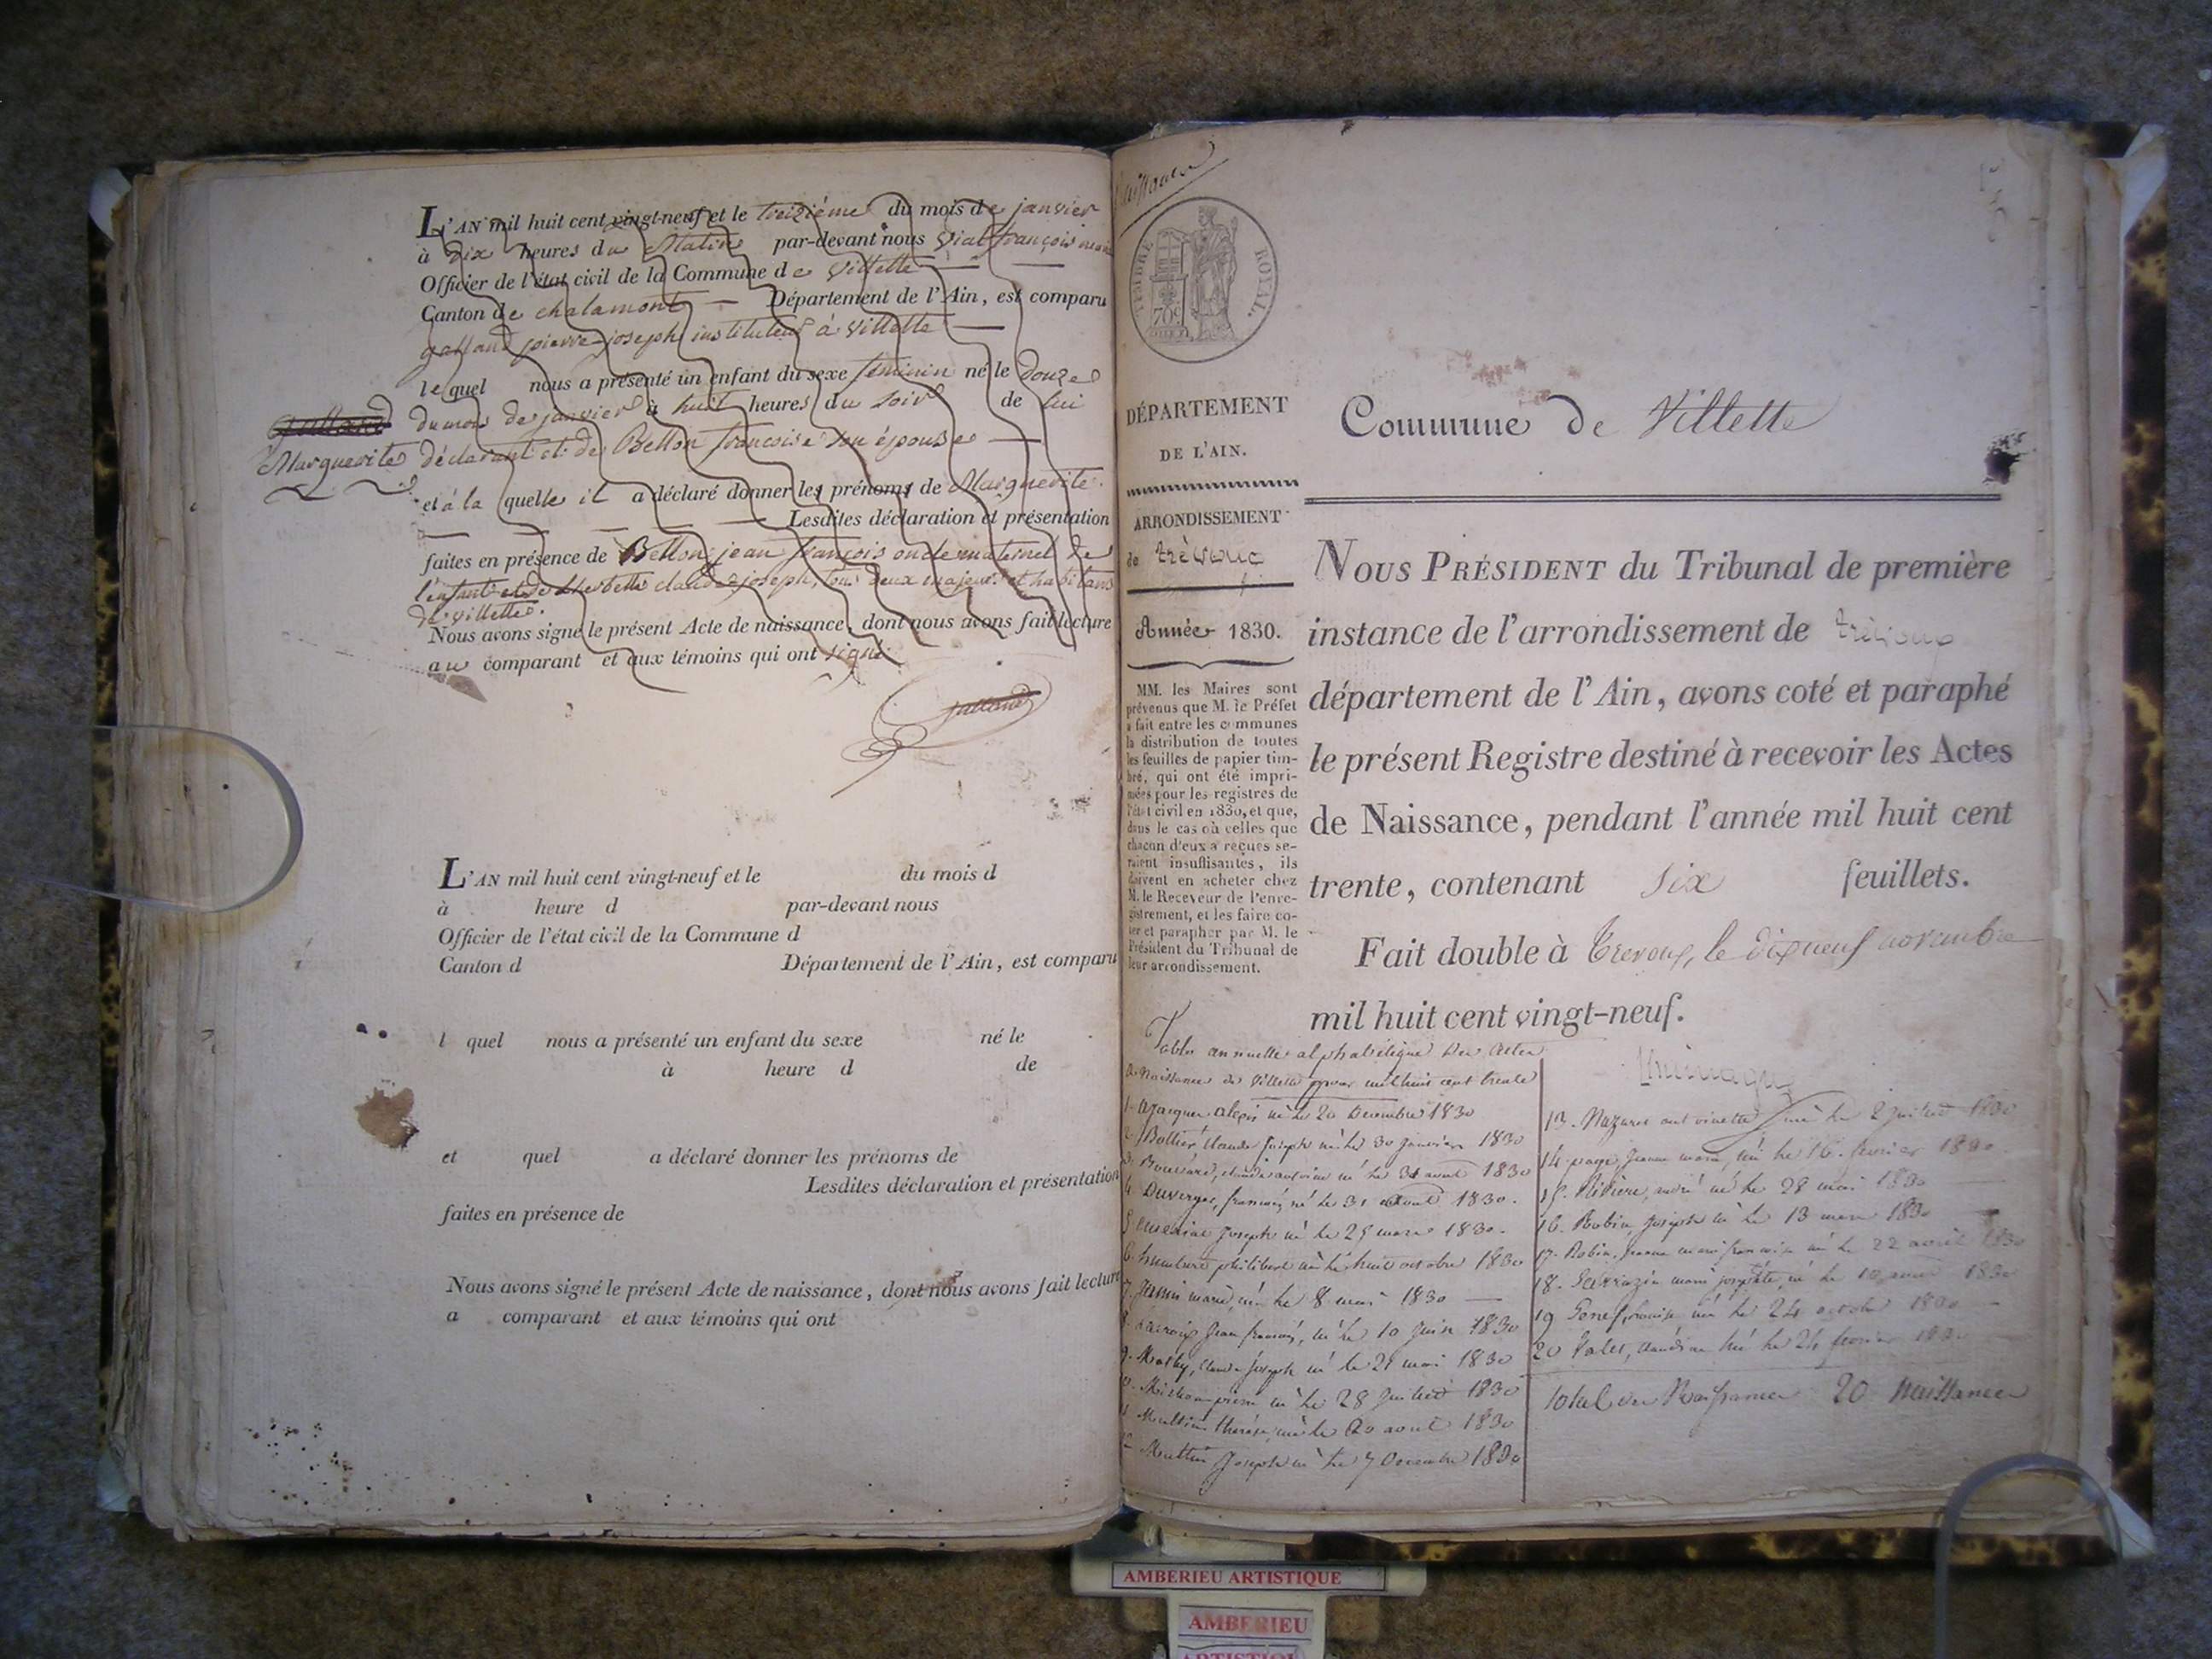 L'AN mil huit cent vingt-neuf et le treizième du mois de janvier
à dix heures du Matin par-devant nous Vial françois maire
Officier de l'état civil de la Commune de Villette
Canton de chalamont Département de l'Ain, est comparu
galland pierre joseph instituteur à Villette
le quel nous a présenté un enfant du sexe féminin né le douze
du mois de janvier à huit heures du soir de lui
déclarant et de Bellon françoise son épouse
et à la quelle il a déclaré donner les prénoms de Marguerite.
Lesdites déclaration et présentation
faites en présence de Bellon jean françois oncle maternel de
l'enfant et de claude joseph, tous deux majeurs et habitans
de villette.
Nous avons signé le présent Acte de naissance, dont nous avons fait lecture
au comparant et aux témoins qui ont signé.
galland
Galland
Marguerite
L'AN mil huit cent vingt-neuf et le du mois d
à heure d par-devant nous
Officier de l'état civil de la Commune d
Canton d Département de l'Ain, est comparu
l quel nous a présenté un enfant du sexe né le
à heure d de
et quel a déclaré donner les prénoms de
Lesdites déclaration et présentation
faites en présence de
Nous avons signé le présent Acte de naissance, dont nous avons fait lecture
a comparant et aux témoins qui ont
Naissance
TIMBRE ROYAL.
70c
DÉPARTEMENT
DE L'AIN.
ARRONDISSEMENT
de trévoux
Année 1830.
MM. les Maires sont
prévenus que M. le Préfet
a fait entre les communes
la distribution de toutes
les feuilles de papier tim-
bré, qui ont été impri-
mées pour les registres de
l'état civil en 1830, et que,
dans le cas où celles que
chacun d'eux a reçues se-
raient insuffisantes, ils
doivent en acheter chez
M. le Receveur de l'enre-
gistrement, et les faire co-
ter et parapher par M. le
Président du Tribunal de
leur arrondissement.
Commune de Villette
NOUS PRÉSIDENT du Tribunal de première
instance de l'arrondissement de trévoux
département de l'Ain, avons coté et paraphé
le présent Registre destiné à recevoir les Actes
de Naissance, pendant l'année mil huit cent
trente, contenant six feuillets.
Fait double à Trevoux, le dix neuf novembre
mil huit cent vingt-neuf.
Table annuelle alphabétique des actes
de Naissance de Villette pour mil huit cent trente
1. alexis né le 20 Decembre 1830
2. Bollier Claude joseph né le 30 janvier 1830
3. claude antoine né le 31 aout 1830
4. Duverger, françois, né le 31 aout 1830.
5. joseph né le 25 mars 1830.
6. philibert né le huit octobre 1830
7. marie, né le 8 mai 1830
8. Lacroix jean françois, né le 10 juin 1830
9. claude joseph né le 21 mai 1830
10. Michon pierre né le 28 juillet 1830
11. thérèse, né le 20 aout 1830
12. joseph né le 7 Decembre 1830
13. né le 2 juillet 1830
14. page, jeanne marie, né le 16. fevrier 1830.
15. andré né le 28 mai 1830
16. Robin, joseph né le 13 mars 1830
17. Robin, jeanne marie françoise né le 22 avril 1830
18. Sarrazin marie josephte, né le 10 1830
19 né le 24 octobre 1830
20 né le 24 fevrier 1830
total des Naissances 20 Naissances
AMBERIEU ARTISTIQUE
AMBERIEU
ARTISTIQUE